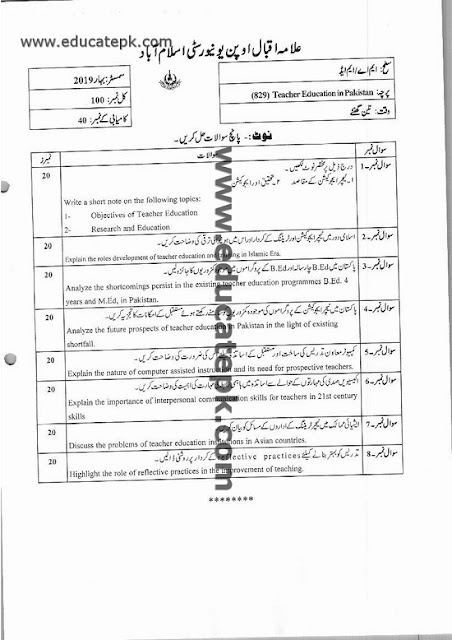 www.educatepk.com
علامہ اقبال اوپن یونیورسٹی اسلام آباد
سطح: ایم اے/ ایم ایڈ
پرچہ: Teacher Education in Pakistan (829)
وقت: تین گھنٹے
سمسٹر: بہار 2019
کل نمبر: 100
کامیابی کے نمبر: 40
نوٹ:- پانچ سوالات حل کریں۔
سوال نمبر سوالات نمبرز
سوال نمبر۔1 درج ذیل پر مختصر نوٹ لکھیں۔ 20
۱۔ ٹیچر ایجوکیشن کے مقاصد ۲۔ تحقیق اور ایجوکیشن
Write a short note on the following topics:
1- Objectives of Teacher Education
2- Research and Education
سوال نمبر۔2 اسلامی دور میں ٹیچر ایجوکیشن اور ٹریننگ کے کردار اور اس میں ہونے والی ترقی کی وضاحت کریں۔ 20
Explain the roles development of teacher education and training in Islamic Era.
سوال نمبر۔3 پاکستان میں B.Ed چار سالہ اور M.Ed کے پروگراموں میں کمزوریوں کا جائزہ لیں۔ 20
Analyze the shortcomings persist in the existing teacher education programmes B.Ed. 4
years and M.Ed, in Pakistan.
سوال نمبر۔4 پاکستان میں ٹیچر ایجوکیشن کے پروگراموں کی موجودہ کمزوریوں کو سامنے رکھتے ہوئے مستقبل کے امکانات کا تجزیہ کریں۔ 20
Analyze the future prospects of teacher education in Pakistan in the light of existing
shortfall.
سوال نمبر۔5 کمپیوٹر معاون تدریس کی ساخت اور مستقبل کے اساتذہ کی ضرورت کی وضاحت کریں۔ 20
Explain the nature of computer assisted instruction and its need for prospective teachers.
سوال نمبر۔6 اکیسویں صدی کی مہارتوں کے حوالے سے اساتذہ میں باہمی مہارت کی اہمیت کی وضاحت کریں۔ 20
Explain the importance of interpersonal communication skills for teachers in 21st century
skills
سوال نمبر۔7 ایشیائی ممالک میں ٹیچر ٹریننگ کے اداروں کے مسائل کو بیان کریں۔ 20
Discuss the problems of teacher education institutions in Asian countries.
سوال نمبر۔8 تدریس کو بہتر بنانے کیلئے reflective practices کے کردار پر روشنی ڈالیں۔ 20
Highlight the role of reflective practices in the improvement of teaching.
********
www.educatepk.com